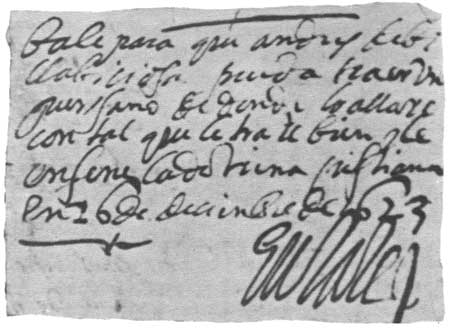 bale para que andres de bi
llabiciosa pueda traer un
guerfano de donde lo allare
con tal que le trate bien y le
enseñe la dotrina cristiana
en 26 de diciembre de 1623